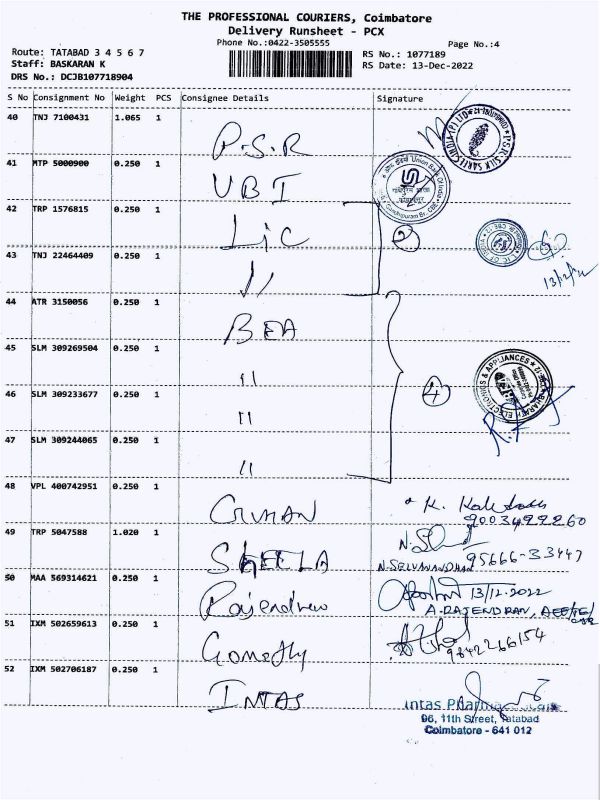 THE PROFESSIONAL COURIERS, Coimbatore
Delivery Runsheet - PCX
Phone No.:0422-3505555
Page No.:4
Route: TATABAD 3 4 5 6 7
RS No.: 1077189
Staff: BASKARAN K
RS Date: 13-Dec-2022
DRS No.: DCJB107718904
S No Consignment No Weight PCS Consignee Details Signature
40 TNJ 7100431 1.065 1
P.S.R
41 MTP 5000900 0.250 1
UBI
42 TRP 1576815 0.250 1
LIC
2
43 TNJ 22464409 0.250 1
"
13/12/22
44 ATR 3150056 0.250 1
BEA
45 SLM 309269504 0.250 1
"
ELECTRONICS & APPLIANCES
46 SLM 309233677 0.250 1
"
4
47 SLM 309244065 0.250 1
"
48 VPL 400742951 0.250 1
GUHAN
9003499260
49 TRP 5047588 1.020 1
SHEELA
95666-33447
N.SELVANANDHAN
50 MAA 569314621 0.250 1
Rajendren
13/12.2022
A.RAJENDRAN,
51 IXM 502659613 0.250 1
9842266154
52 IXM 502706187 0.250 1
INTAS
Intas Pharma
96, 11th Street, Tatabad
Coimbatore - 641 012